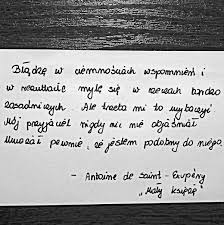 Błądzę w ciemnościach wspomnień i
w rezultacie mylę się w rzeczach bardzo
zasadniczych. Ale trzeba mi to wybaczyć.
Mój przyjaciel nigdy nic mi objaśniał.
Uważał pewnie, że jestem podobny do niego.
- Antoine de Saint-Exupéry
"Mały książę"